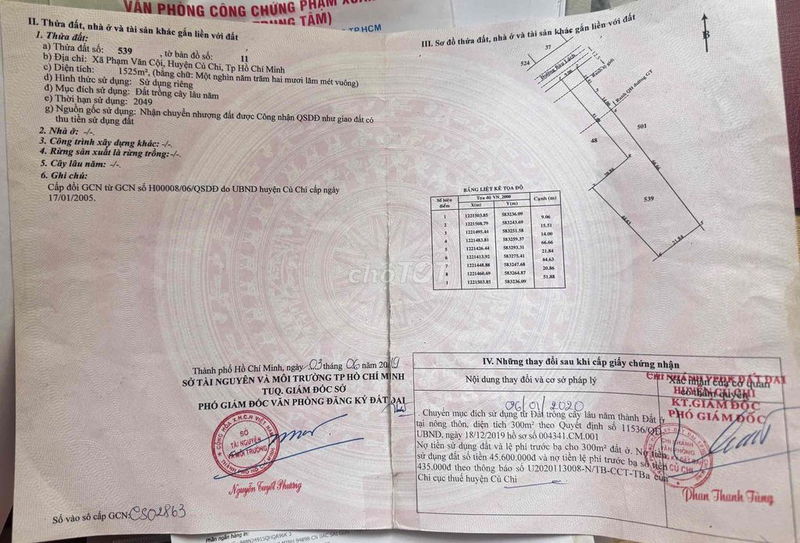 VĂN PHÒNG CÔNG CHỨNG PHẠM XUÂN
TRUNG TÂM)
TP.HCM
II. Thửa đất, nhà ở và tài sản khác gắn liền với đất
1. Thửa đất:
a) Thửa đất số: 539 , tờ bản đồ số: 11
b) Địa chỉ: Xã Phạm Văn Cội, Huyện Củ Chi, Tp Hồ Chí Minh
c) Diện tích: 1525m², (bằng chữ: Một nghìn năm trăm hai mươi lăm mét vuông)
d) Hình thức sử dụng: Sử dụng riêng
đ) Mục đích sử dụng: Đất trồng cây lâu năm
e) Thời hạn sử dụng: 2049
g) Nguồn gốc sử dụng: Nhận chuyển nhượng đất được Công nhận QSDĐ như giao đất có
thu tiền sử dụng đất
2. Nhà ở: -/-
3. Công trình xây dựng khác: -/-
4. Rừng sản xuất là rừng trồng: -/-
5. Cây lâu năm: -/-
6. Ghi chú:
Cấp đổi GCN từ GCN số H00008/06/QSDĐ do UBND huyện Củ Chi cấp ngày
17/01/2005.
Thành phố Hồ Chí Minh, ngày 03 tháng 06 năm 2019
SỞ TÀI NGUYÊN VÀ MÔI TRƯỜNG TP HỒ CHÍ MINH
TUQ. GIÁM ĐỐC SỞ
PHÓ GIÁM ĐỐC VĂN PHÒNG ĐĂNG KÝ ĐẤT ĐAI
SỞ
TÀI NGUYÊN
VÀ MÔI TRƯỜNG
Nguyễn Tuyết Phương
Số vào sổ cấp GCN: CS02863
III. Sơ đồ thửa đất, nhà ở và tài sản khác gắn liền với đất
B
37
524
503
48
539
66.66
21.84
44.63
BẢNG LIỆT KÊ TỌA ĐỘ
Số hiệu điểm Tọa độ VN_2000 Cạnh (m)
X(m) Y(m)
1 1221503.85 583236.09
9.06
2 1221508.79 583243.69
15.51
3 1221495.44 583251.58
14.00
4 1221483.81 583259.37
66.66
5 1221426.44 583293.31
21.84
6 1221413.92 583275.41
44.63
7 1221448.88 583247.68
20.86
8 1221460.69 583264.87
51.88
1 1221503.85 583236.09
chợTỐT
IV. Những thay đổi sau khi cấp giấy chứng nhận
Nội dung thay đổi và cơ sở pháp lý
Xác nhận của cơ quan
có thẩm quyền
06/01/2020
Chuyển mục đích sử dụng từ Đất trồng cây lâu năm thành Đất ở
tại nông thôn, diện tích 300m² theo Quyết định số 11536/QĐ-
UBND, ngày 18/12/2019 hồ sơ số 004341.CM.001
Nợ tiền sử dụng đất và lệ phí trước bạ cho 300m² đất ở. Nợ tiền
sử dụng đất số tiền 45.600.000đ và nợ tiền lệ phí trước bạ số tiền
435.000đ theo thông báo số 12020113008-N/TB-CCT-TBa của
Chi cục thuế huyện Củ Chi
CHI NHÁNH VPĐK ĐẤT ĐAI
HUYỆN CỦ CHI
KT.GIÁM ĐỐC
PHÓ GIÁM ĐỐC
CHI NHÁNH
VĂN PHÒNG
CỦ CHI
Phan Thanh Tùng